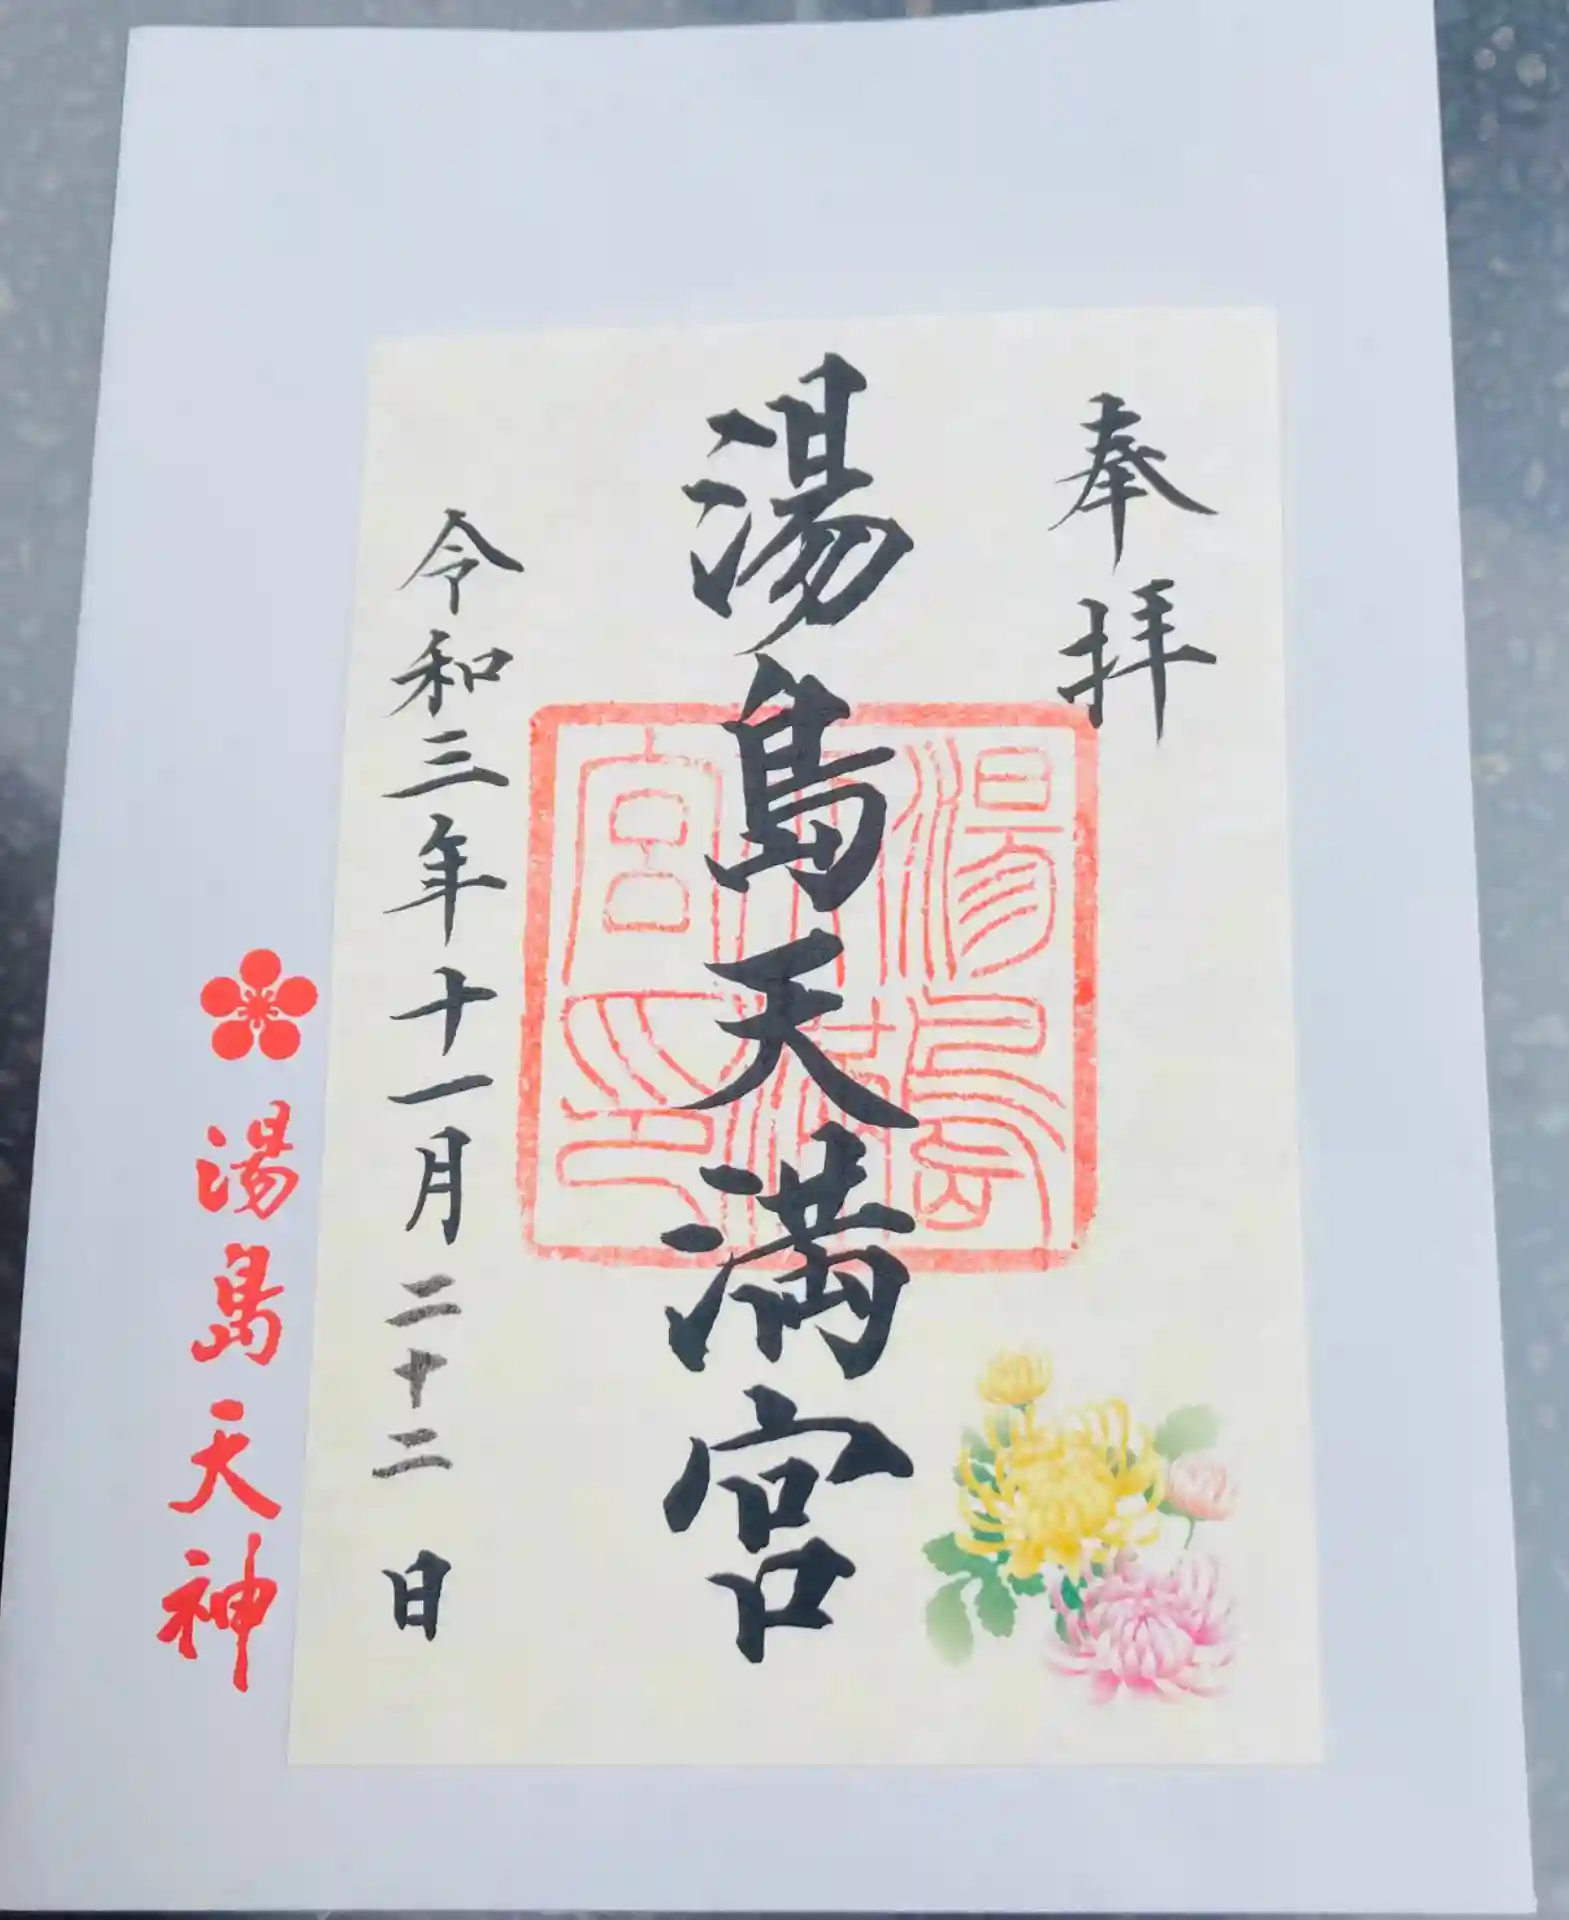 奉拝
湯島天満宮
令和三年十一月二十二日
湯島天神